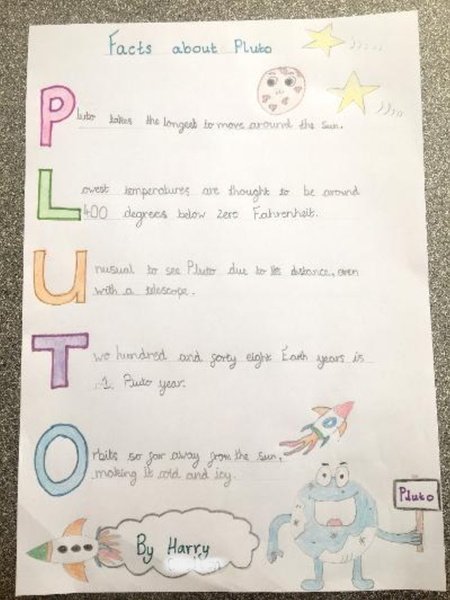 Facts about Pluto
Pluto takes the longest to move around the Sun.
Lowest temperatures are thought to be around
400 degrees below zero Fahrenheit.
Unusual to see Pluto due to its distance, even
with a telescope.
Two hundred and forty eight Earth years is
1 Pluto year.
Orbits so far away from the sun,
making it cold and icy.
Pluto
By Harry